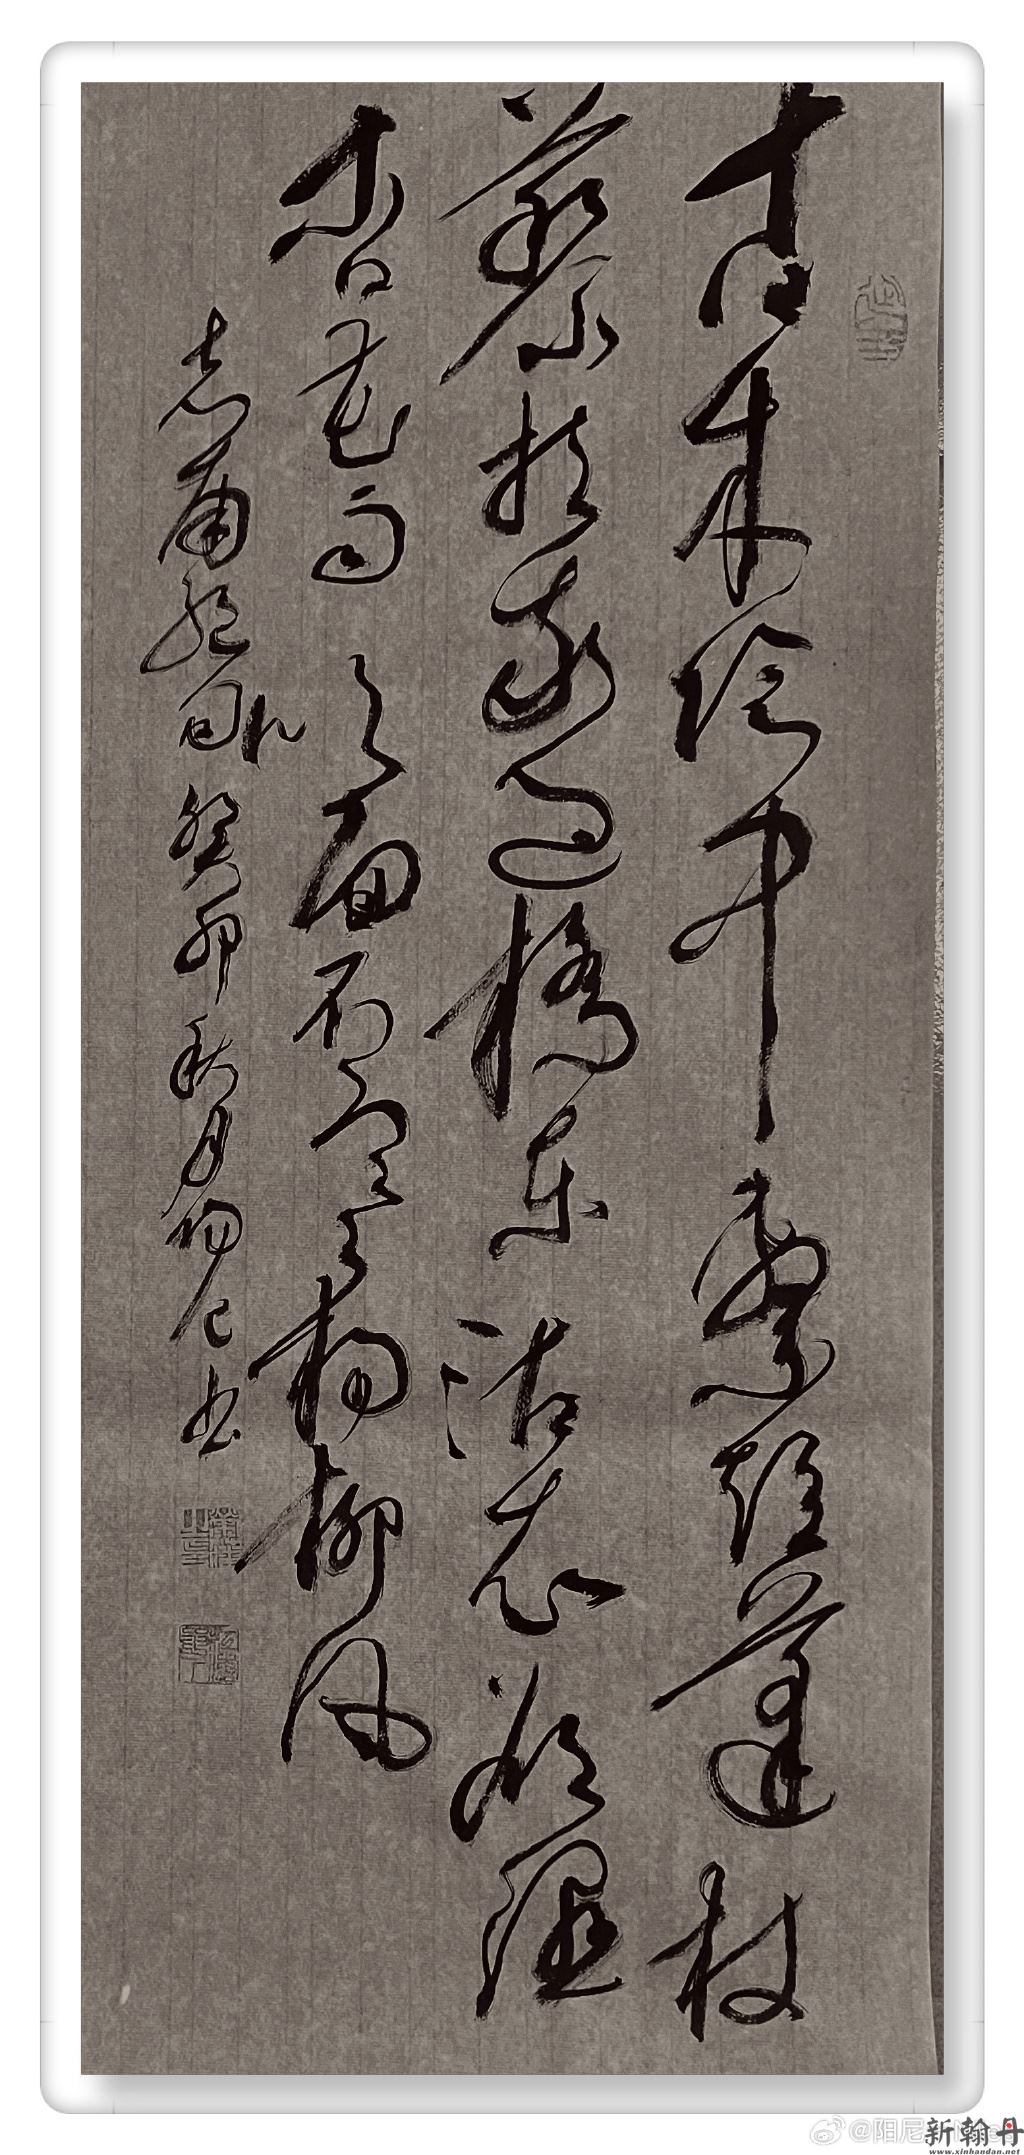 古木陰中繫短篷杖
藜扶我過橋東沾衣欲濕
杏花雨吹面不寒楊柳風
志南絕句 癸卯秋月 书
@阳尼
新翰丹
www.xinhandan.net